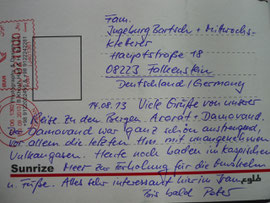 Fam.
Ingeburg Bartsch + Mittwochs-
kleberer
Hauptstraße 18
08223 Falkenstein
Deutschland/Germany
14.08.13 Viele Grüße von unserer
Reise zu den Bergen Ararat + Damavand.
Der Damavand war ganz schön anstrengend,
vor allem die letzten Hm mit unangenehmen
Vulkangasen. Heute noch baden im kaspischen
Sunrize Meer zur Erholung für die Muskeln
u. Füße. Alles sehr interessant hier im Iran.
Bis bald Peter